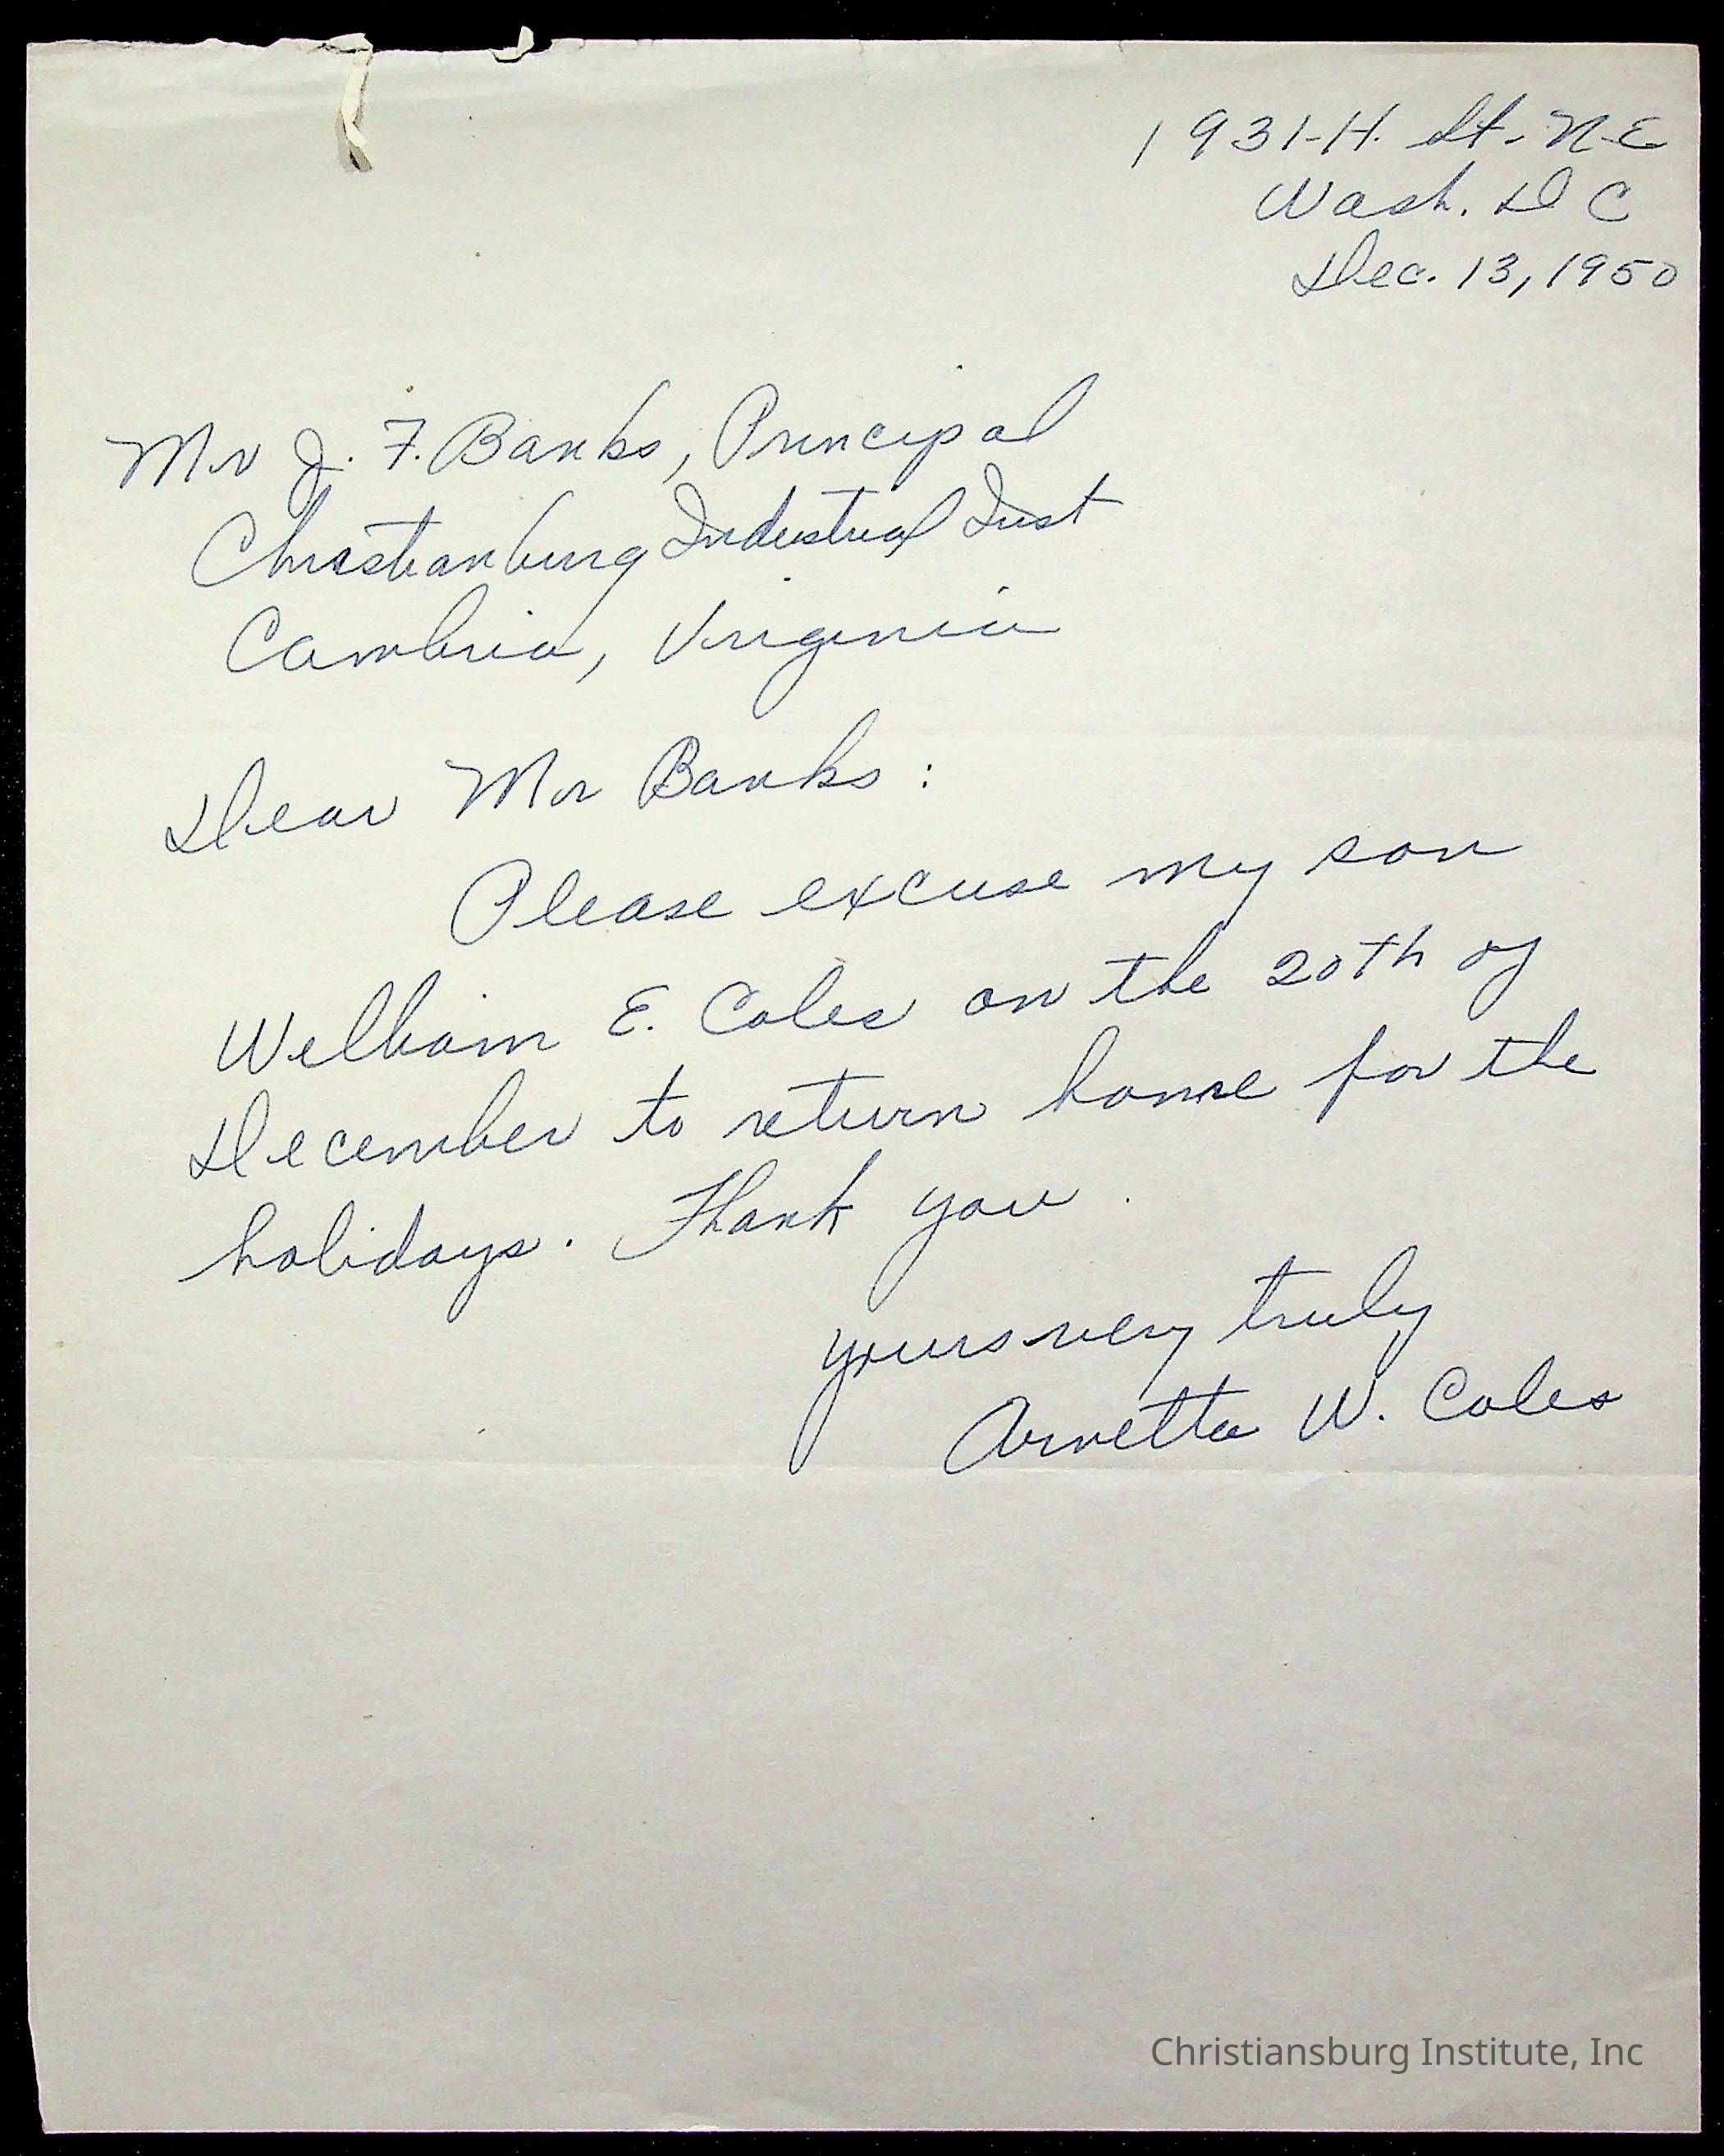 1931-H. St. N-E
Wash. D C
Dec. 13, 1950
Mr J. F. Banks, Principal
Christianburg Industrial Inst
Cambria, Virginia
Dear Mr Banks:
Please excuse my son
William E. Coles on the 20th of
December to return home for the
holidays. Thank you.
yours very truly
Arnetta W. Coles
Christiansburg Institute, Inc